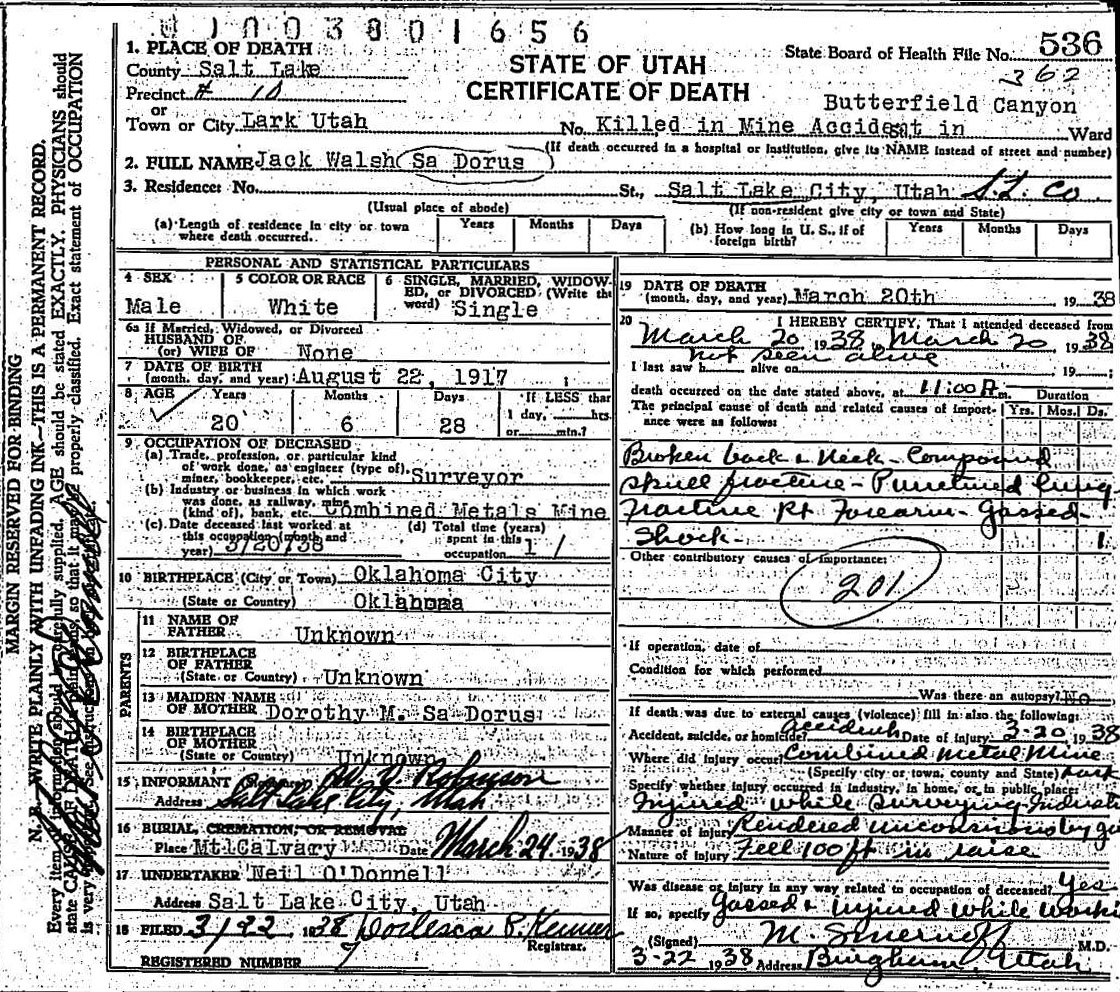 1003801656
1. PLACE OF DEATH
County Salt Lake
Precinct # 10
or
Town or City Lark Utah
STATE OF UTAH
CERTIFICATE OF DEATH
State Board of Health File No. 536
362
Butterfield Canyon
No. Killed in Mine Accident in Ward
(If death occurred in a hospital or institution, give its NAME instead of street and number)
2. FULL NAME Jack Walsh (Sa Dorus
3. Residence: No. St., Salt Lake City, Utah S.L. Co.
(Usual place of abode) (If non-resident give city or town and State)
(a) Length of residence in city or town where death occurred. Years Months Days
(b) How long in U. S., if of foreign birth? Years Months Days
PERSONAL AND STATISTICAL PARTICULARS
4 SEX
Male
5 COLOR OR RACE
White
6 SINGLE, MARRIED, WIDOWED, OR DIVORCED (Write the word) Single
6a If Married, Widowed, or Divorced
HUSBAND OF
(or) WIFE OF None
7 DATE OF BIRTH
(month, day, and year) August 22, 1917
8 AGE Years Months Days If LESS than
1 day, hrs.
20 6 28 or min.?
9 OCCUPATION OF DECEASED
(a) Trade, profession, or particular kind
of work done, as engineer (type of),
miner, bookkeeper, etc. Surveyor
(b) Industry or business in which work
was done, as railway, mine
(kind of), bank, etc. Combined Metals Mine
(c) Date deceased last worked at
this occupation (month and
year) 3/20/38
(d) Total time (years)
spent in this
occupation 1
10 BIRTHPLACE (City or Town) Oklahoma City
(State or Country) Oklahoma
PARENTS
11 NAME OF
FATHER Unknown
12 BIRTHPLACE
OF FATHER
(State or Country) Unknown
13 MAIDEN NAME
OF MOTHER Dorothy M. Sa Dorus
14 BIRTHPLACE
OF MOTHER
(State or Country) Unknown
15 INFORMANT W. V. Robinson
Address Salt Lake City, Utah
16 BURIAL, CREMATION, OR REMOVAL
Place Mt. Calvary Date March 24 1938
17 UNDERTAKER Neil O'Donnell
Address Salt Lake City, Utah
18 FILED 3/22 1938 P. Registrar.
REGISTERED NUMBER 7
19 DATE OF DEATH
(month, day, and year) March 20th 19 38
20 I HEREBY CERTIFY, That I attended deceased from
March 20 1938 to March 20 1938
not seen alive
I last saw h alive on 19 ;
death occurred on the date stated above, at 11:00 A m.
Duration
The principal cause of death and related causes of importance were as follows: Yrs. Mos. Ds.
Broken back & Neck - Compound
skull fracture - Punctured lung
Fracture Rt Forearm - Gassed -
Shock - 1
Other contributory causes of importance:
201
If operation, date of
Condition for which performed
Was there an autopsy? No
If death was due to external causes (violence) fill in also the following:
Accident, suicide, or homicide? Accident Date of injury 3-20 1938
Where did injury occur? Combined Metal Mine
(Specify city or town, county and State) Lark
Specify whether injury occurred in industry, in home, or in public place:
Injured while Surveying Indust
Manner of injury Rendered unconscious by ga
Nature of injury Fell 100 ft in raise
Was disease or injury in any way related to occupation of deceased? Yes
If so, specify Gassed & Injured While Worki
(Signed) M. M.D.
3-22 1938 Address Bingham, Utah
MARGIN RESERVED FOR BINDING
N. B. WRITE PLAINLY WITH UNFADING INK—THIS IS A PERMANENT RECORD.
Every item of information should be carefully supplied. AGE should be stated EXACTLY. PHYSICIANS should
state CAUSE OF DEATH in plain terms, so that it may be properly classified. Exact statement of OCCUPATION
is very